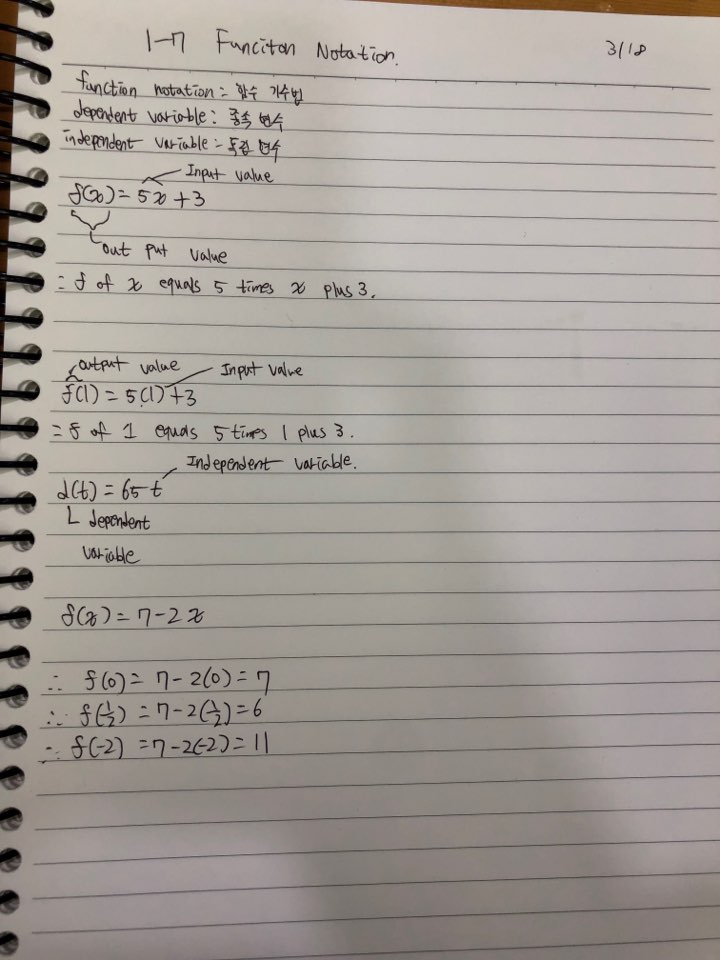 1-7 Funciton Notation. 3/18
function notation = 함수 기수법
dependent variable : 종속 변수
independent variable = 독립 변수
Input value
f(x) = 5x + 3
out put value
= f of x equals 5 times x plus 3.
output value Input value
f(1) = 5(1) + 3
= f of 1 equals 5 times 1 plus 3.
Independent variable.
d(t) = 65t
dependent
variable
f(x) = 7 - 2x
∴ f(0) = 7 - 2(0) = 7
∴ f(1/2) = 7 - 2(1/2) = 6
∴ f(-2) = 7 - 2(-2) = 11